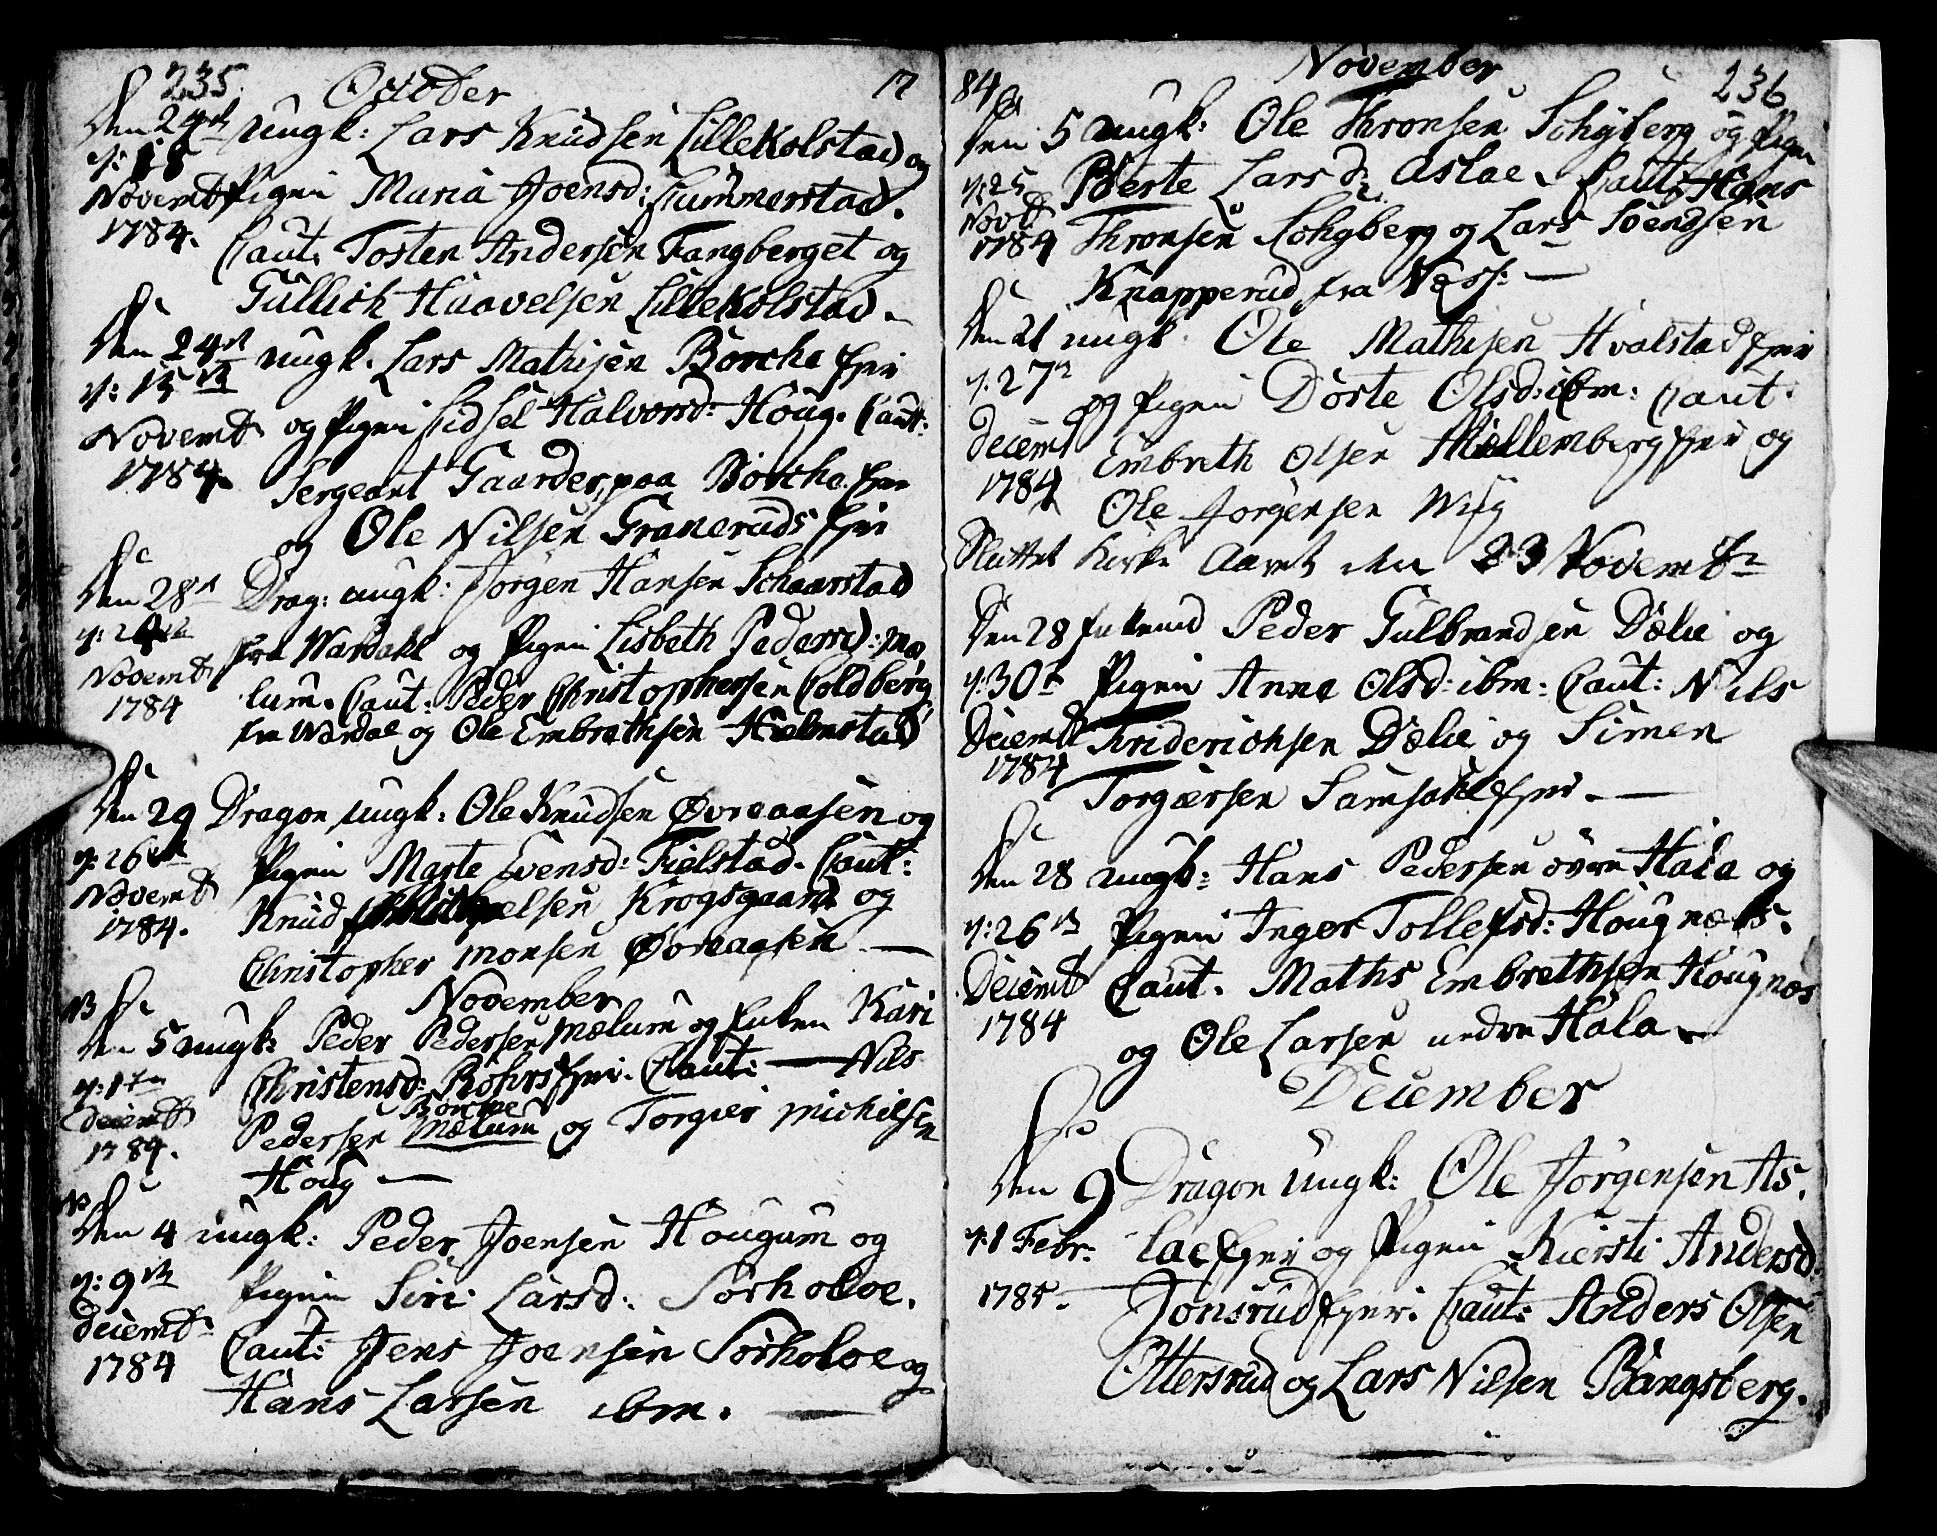 235. October 17
Den 24de ungk: Lars Knudsen Lillekolstad og
y: 18
Novembr Pigen Maria Joensd: Hummerstad.
1784. Caut. Tosten Andersen Fangberget og
Gullich Haavelsen Lillekolstad.
Den 24de ungk. Lars Mathisen Borche Eier
y: 15de
Novembr og Pigen Sidsel Halvorsd: Houg. Caut:
1784. Sergeant Gaarder, paa Borche Eier
og Ole Nilsen Granerud Eier
Den 28de Drag: ungk: Jörgen Hansen Schaarstad
y: 24de fra Wardahl og Pigen Lisbeth Pedersd: Mæ
Novembr lum. Caut: Peder Christophersen Coldberg
1784 fra Wardal og Ole Embrethsen Hielmstad
Den 29 Dragon ungk: Ole Knudsen Øvreaasen og
y: 26de Pigen Marte Evensd: Fielstad. Caut:
Novembr Knud elsen Krogsgaard og
1784. Christopher Monsen Øvreaasen —
November
NB
Den 5 ungk: Peder Pedersen Mælum og Enken Kari
y: 1ste Christensd: Röhrs Eier. Caut: — Nils
Decembr Borche
1784. Pedersen Mælum og Torgier Michelsen
Houg —
NB
Den 4 ungk: Peder Joensen Hougum og
y: 9de Pigen Siri Larsd: Sörholoe.
Decembr
1784 Caut: Jens Joensen Sörholoe og
Hans Larsen ibm. —
84 November 236
Den 5 ungk: Ole Thronsen Schyberg og Pigen
y: 25 Berte Larsd: Aslae. Caut: Hans
Novbr
1784 Thronsen Schyberg og Lars Svendsen
Knapperud fra Næss: —
Den 21 ungk. Ole Mathisen Hvalstad Eier
y: 27de og Pigen Dorte Olsd: ibm: Caut.
Decembr Embreth Olsen Mellemberg Eier og
1784 Ole Jorgensen Wiig
Sluttet Kirke Aaret den 23 Novembr
Den 28 Enkemd Peder Gulbrandsen Dælie og
y: 30te Pigen Anne Olsd: ibm: Caut: Nils
Decembr Friderichsen Dælie og Simen
1784
Torgiersen Samsahl Eier. —
Den 28 ungk: Hans Pedersen övre Hala og
y: 26de Pigen Inger Tollefsd: Hougnæss.
Decembr Caut. Maths Embrethsen Hougnæs
1784 og Ole Larsen nedre Hala
December
Den 9 Dragon ungk: Ole Jörgensen As,
y: 1 Febr: lae Eier og Pigen Kiersti Andersd:
1785. Jonsrud Eier. Caut: Anders Olsen
Ottersrud og Lars Nielsen Bangsberg.